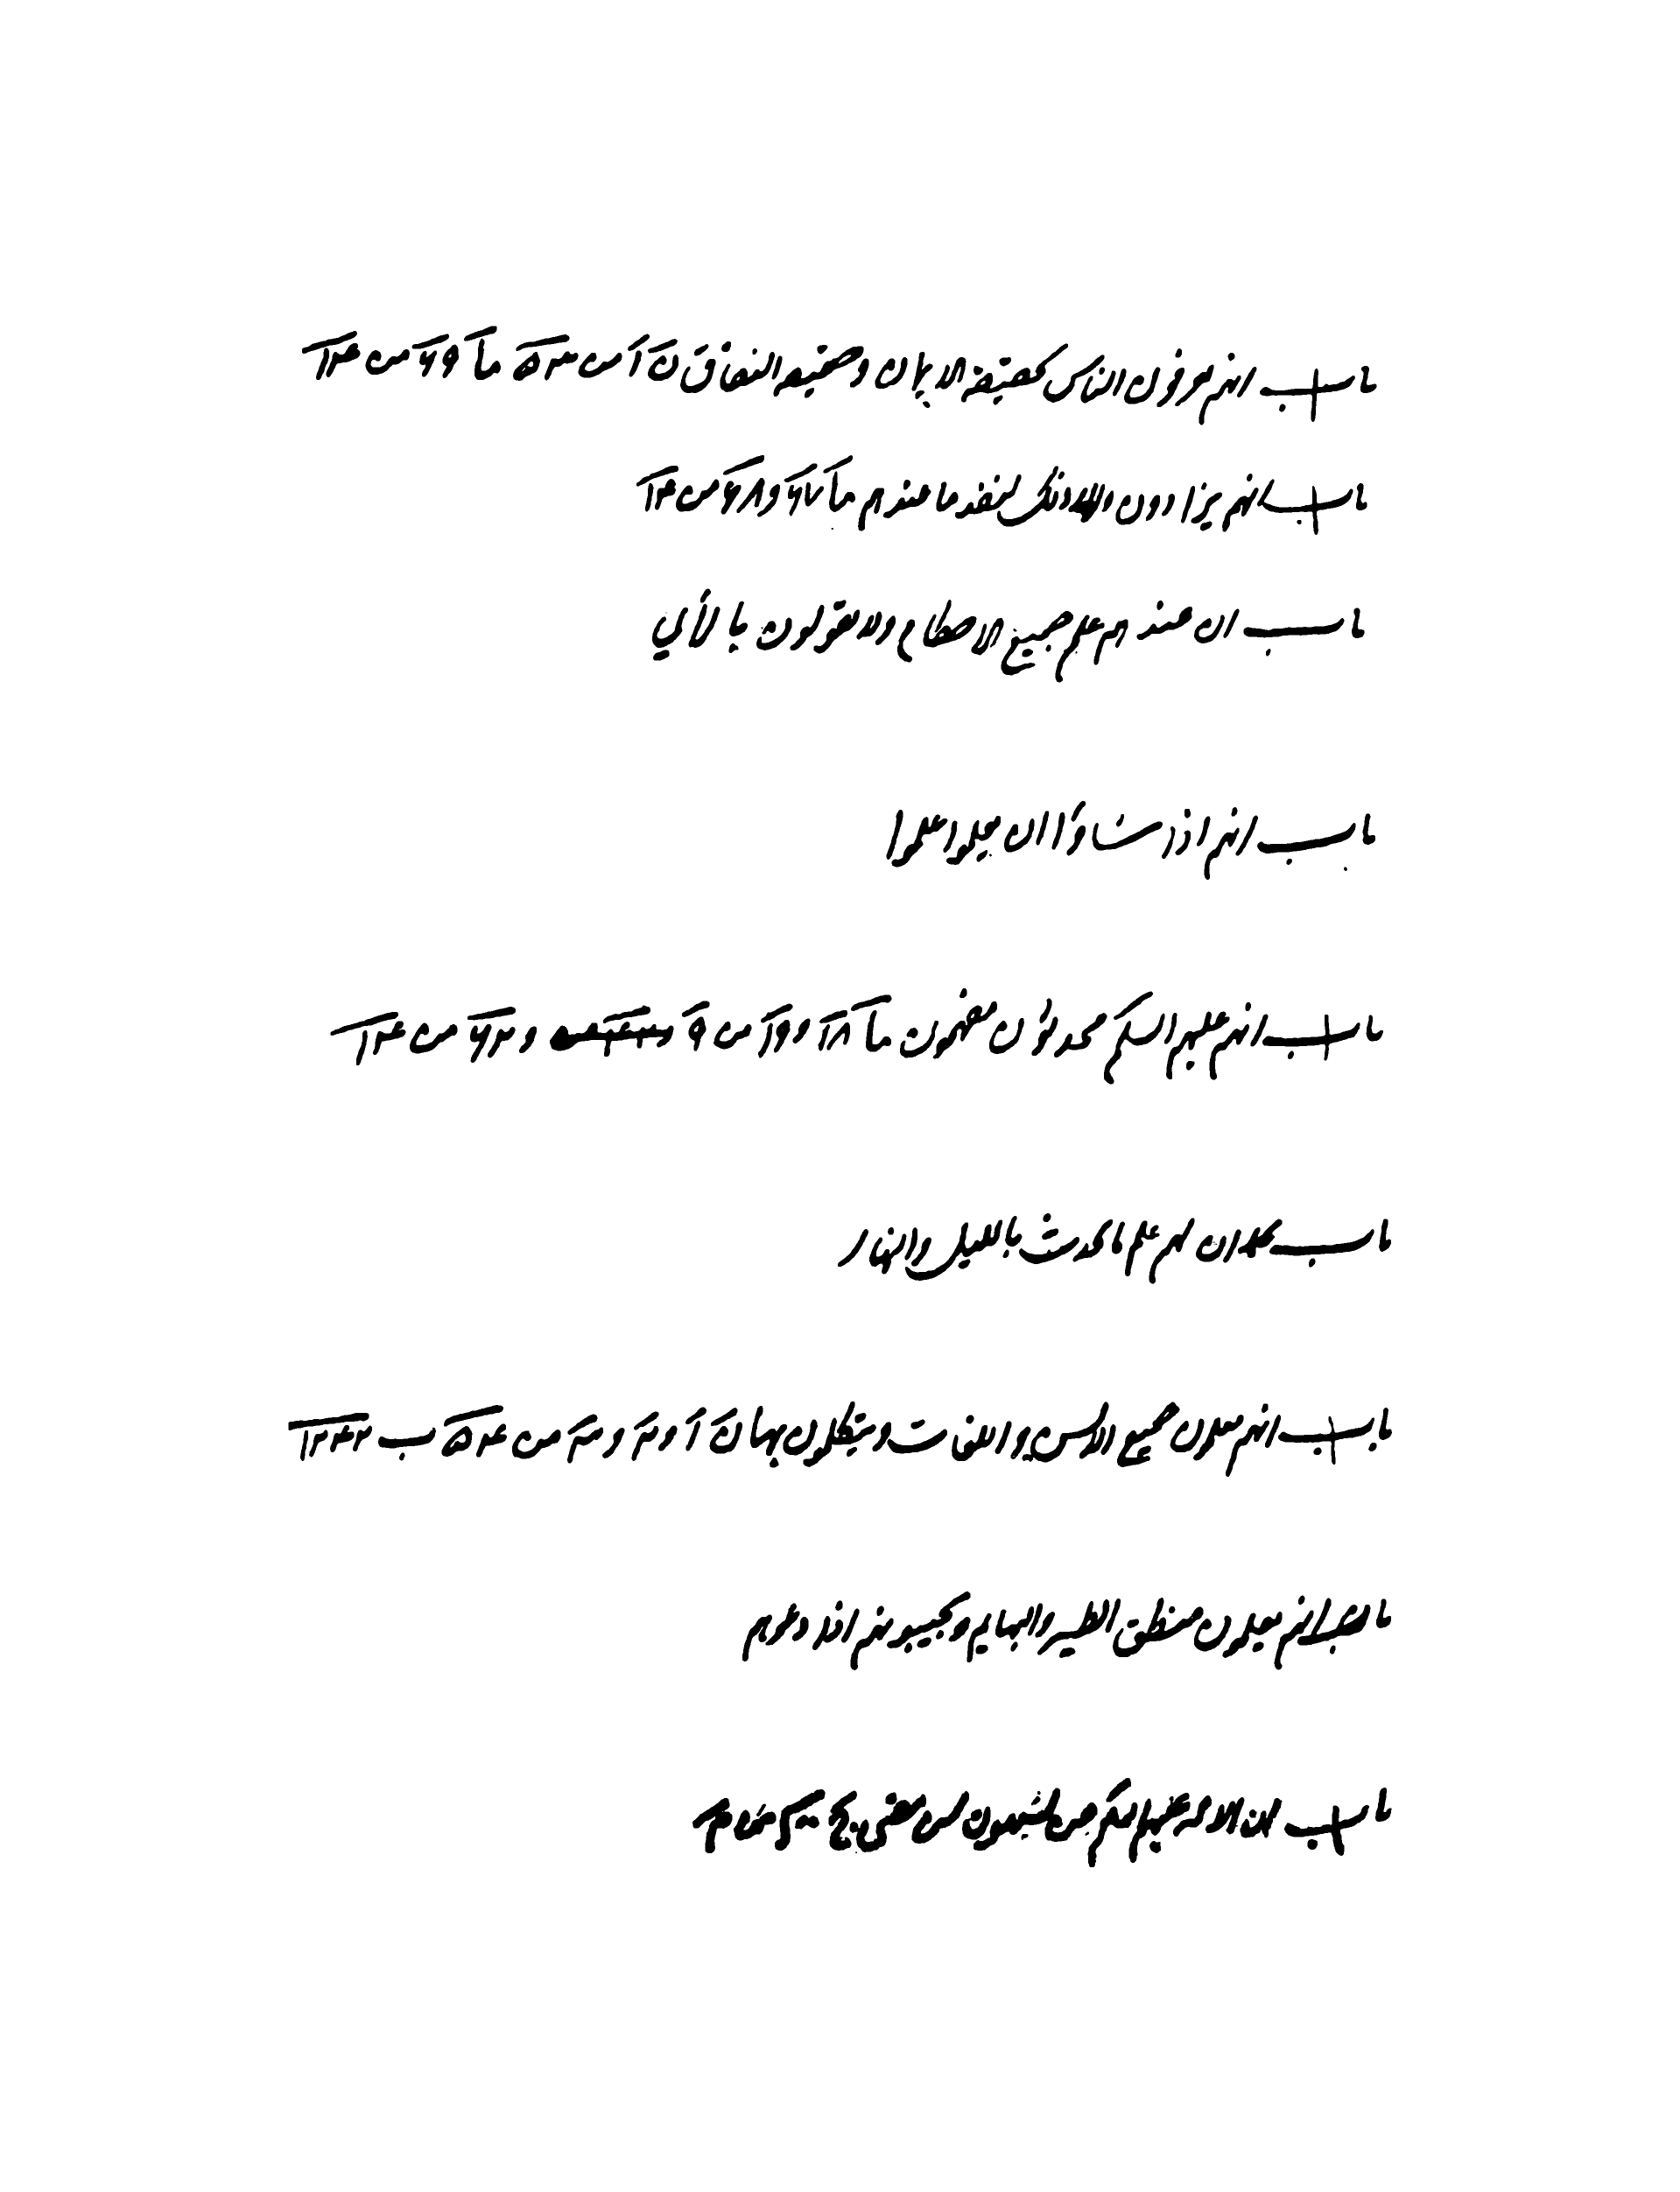 باب انهم يعرفون الناس بحقيقة الايمان وحقيقة النفاق ن آ س ٥٣ ما ٦٩ س ١٣٤
باب انهم يزادون ولولا ذلك لنفد ما عندهم ما ٦٧ و ٦٨ س ١٣٤
باب ان عندهم علم جميع الاحكام ولا يقولون بالرأي
باب انهم اذا شاؤا ان يعلموا علموا
باب انهم عليهم السلم محدثون مفهمون ما ١٨ و س ٩ و ٦٣ س ١٣٤
باب ان لهم علم ما يحدث بالليل والنهار
باب انهم يعلمون جميع الالسن واللغات ويتكلمون بها ن آ و س ٥٤ ب
باب انهم يعلمون منطق الطير والبهايم ويجيبونهم اذا دعوهم
باب ان الائمة عليهم السلم